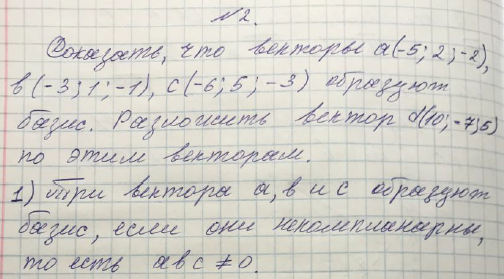 №2.
Доказать, что векторы a(-5; 2; -2),
в (-3; 1; -1), c(-6; 5; -3) образуют
базис. Разложить вектор d(10; -7; 5)
по этим векторам.
1) Три вектора a, в и c образуют
базис, если они некомпланарны,
то есть a в c ≠ 0.